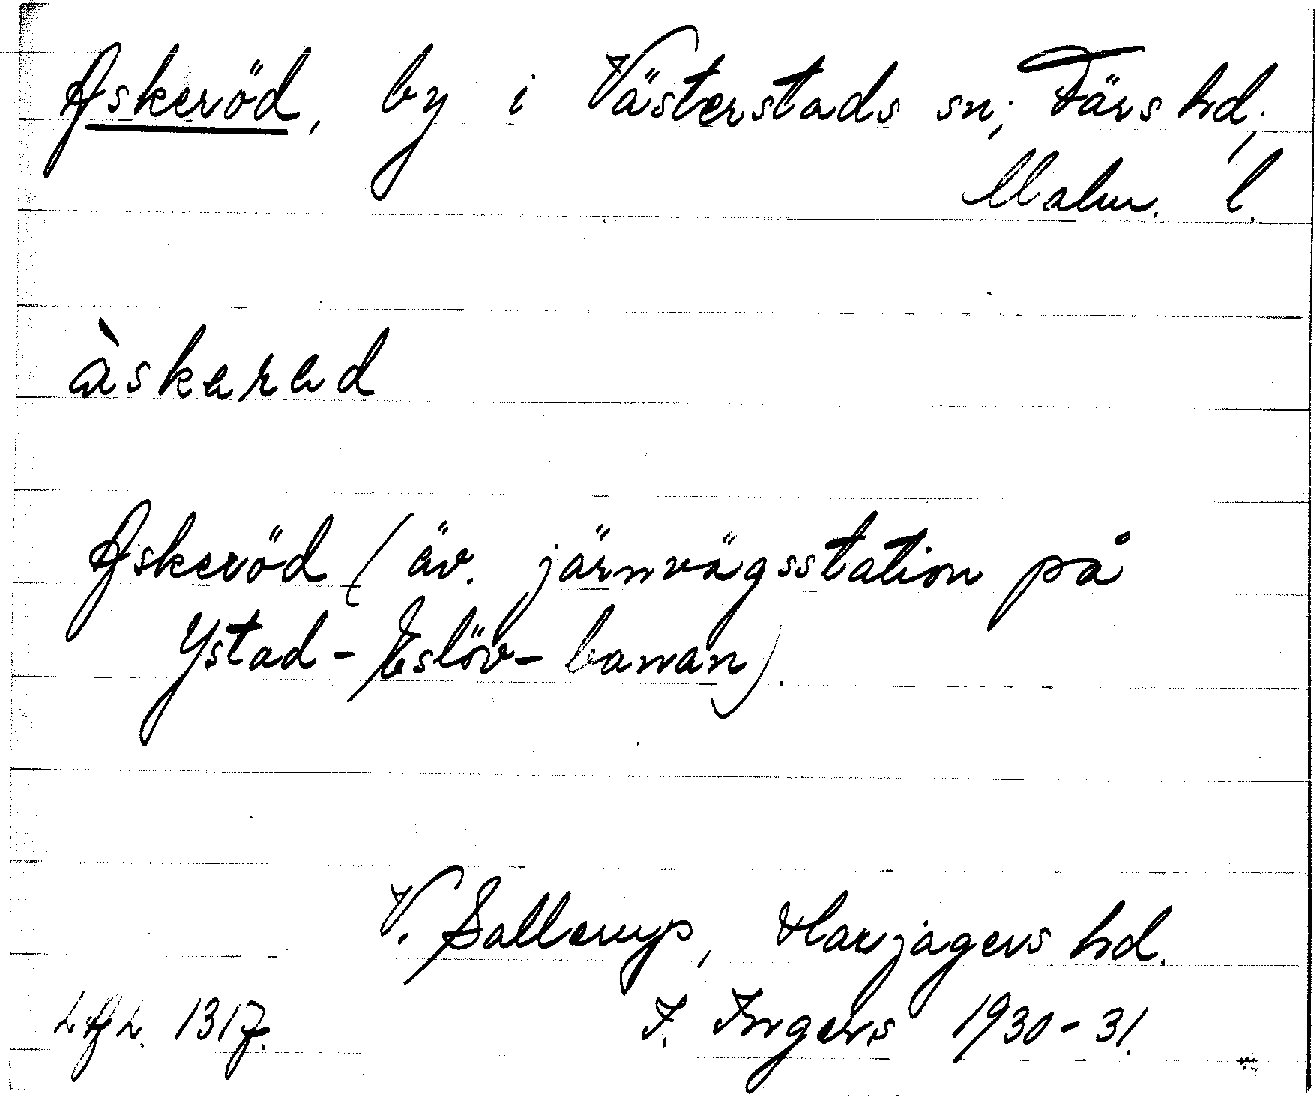 Askeröd, by i Västerstads sn; Färs hd;
Malm. l.
àskerad
Askeröd (äv. järnvägsstation på
Ystad-Eslöv-banan).
V. Sallerup, Harjagers hd.
LAL. 1317. I. Ingers 1930-31.